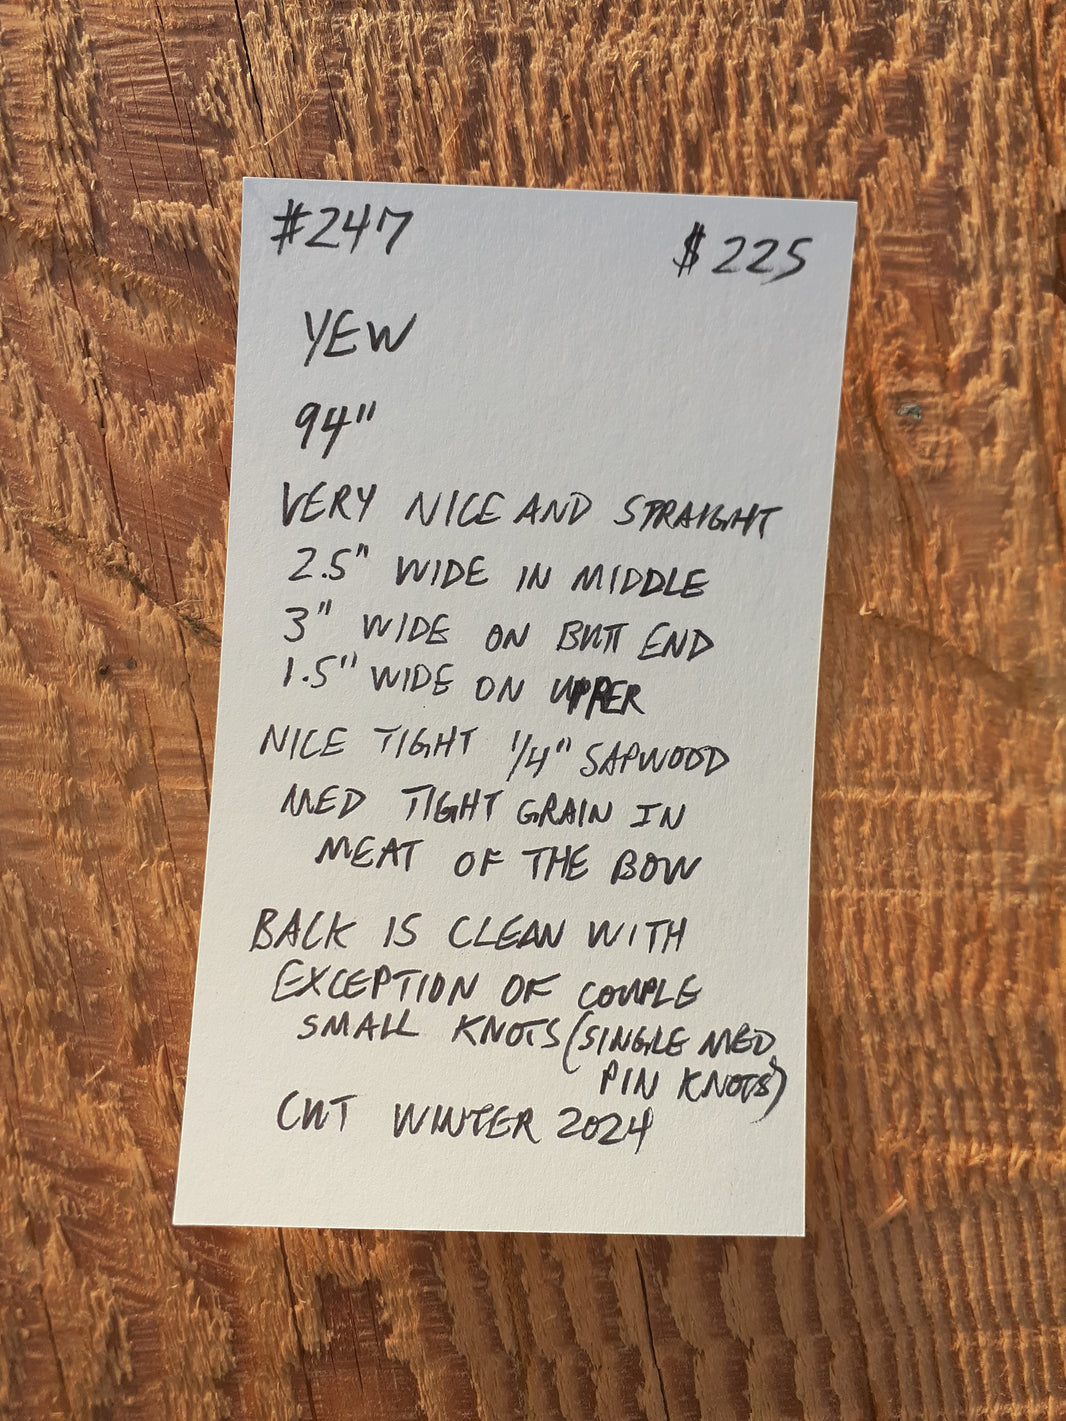 #247
$225
YEW
94"
VERY NICE AND STRAIGHT
2.5" WIDE IN MIDDLE
3" WIDE ON BUTT END
1.5" WIDE ON UPPER
NICE TIGHT 1/4" SAPWOOD
MED TIGHT GRAIN IN
MEAT OF THE BOW
BACK IS CLEAN WITH
EXCEPTION OF COUPLE
SMALL KNOTS (SINGLE MED
PIN KNOTS)
CUT WINTER 2024